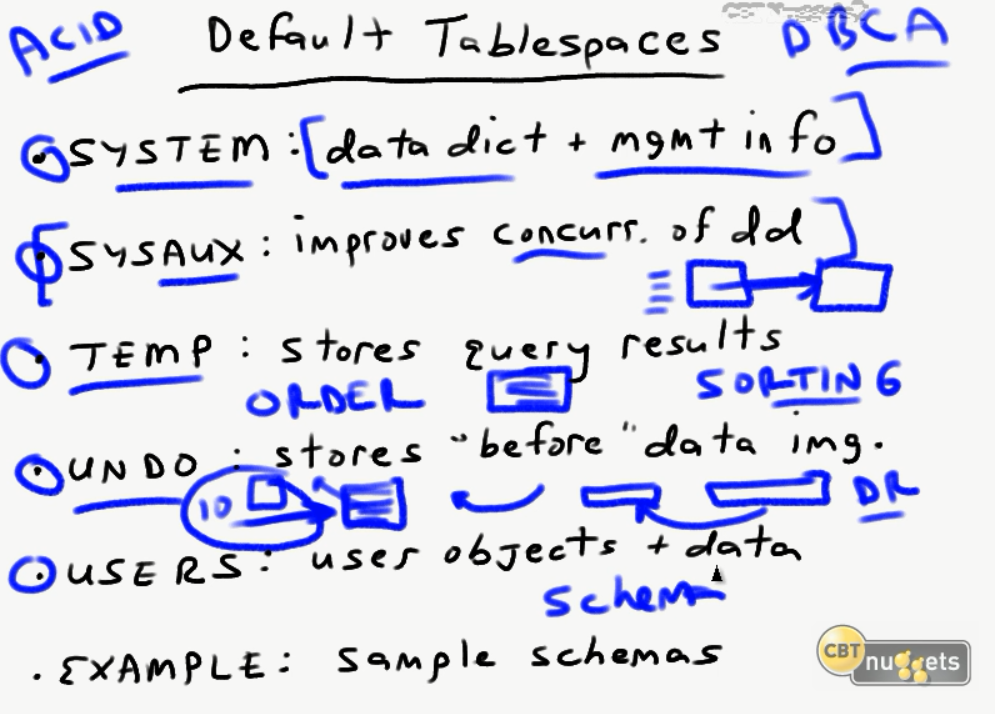 ACID Default Tablespaces DBCA
• SYSTEM : [data dict + mgmt info]
• SYSAUX : improves concurr. of dd
• TEMP : stores query results
ORDER SORTING
• UNDO : stores "before" data img.
10 DR
• USERS : user objects + data
Schema
. EXAMPLE : sample schemas
CBT nuggets